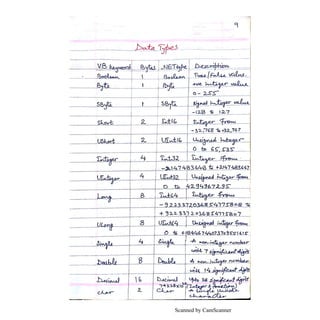 9
Data Types
VB Keyword Bytes .NET type Description
Boolean 1 Boolean True/False value
Byte 1 Byte +ve Integer value
0 - 255
SByte 1 SByte Signed Integer value
-128 to 127
Short 2 Int16 Integer From
-32,768 to +32,767
UShort 2 UInt16 Unsigned Integer
0 to 65,535
Integer 4 Int32 Integer From
-2147483648 to +2147483647
UInteger 4 UInt32 Unsigned Integer from
0 to 4294967295
Long 8 Int64 Integer From
-9223372036854775808 to
+9223372036854775807
ULong 8 UInt64 Unsigned Integer From
0 to
Single 4 Single A non integer number
with 7 significant digits
Double 8 Double A non integer number
with 14 significant digits
Decimal 16 Decimal Upto 28 significant digits
Char 2 Char A single Unicode
character
Scanned by CamScanner